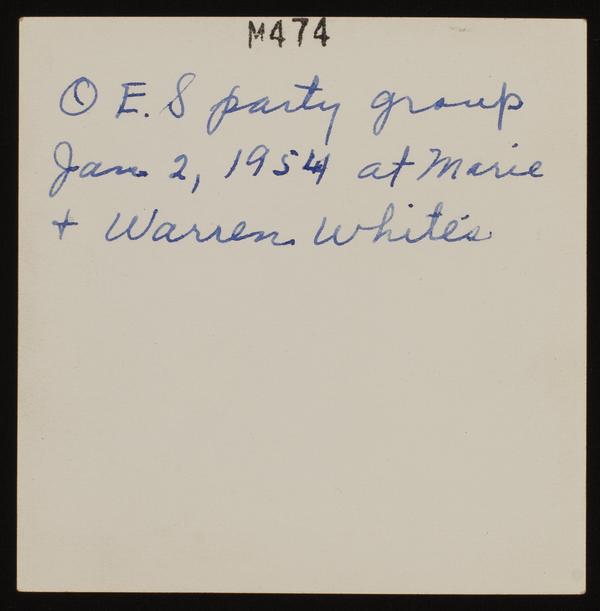 M474
O E. S party group
Jan. 2, 1954 at Marie
+ Warren White's